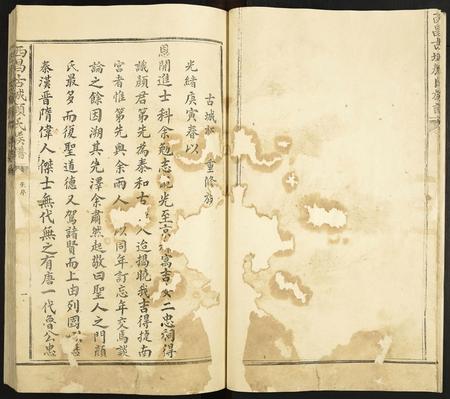 古城 重修族
光緒庚寅春以
恩開進士科余勉志 光至京 寓吉安二忠祠得
識顏君第先為泰和古 人迨揭曉我吉得捷南
宮者惟第先與余兩人 以同年訂忘年交馬談
論之餘因溯其先澤余肅然起敬曰聖人之門顏
氏最多而復聖道德又駕諸賢而上由列國
秦漢晉隋偉人傑士無代無之有唐一代魯公忠
西昌古城顏氏族譜
張序
西昌古城顏氏族譜